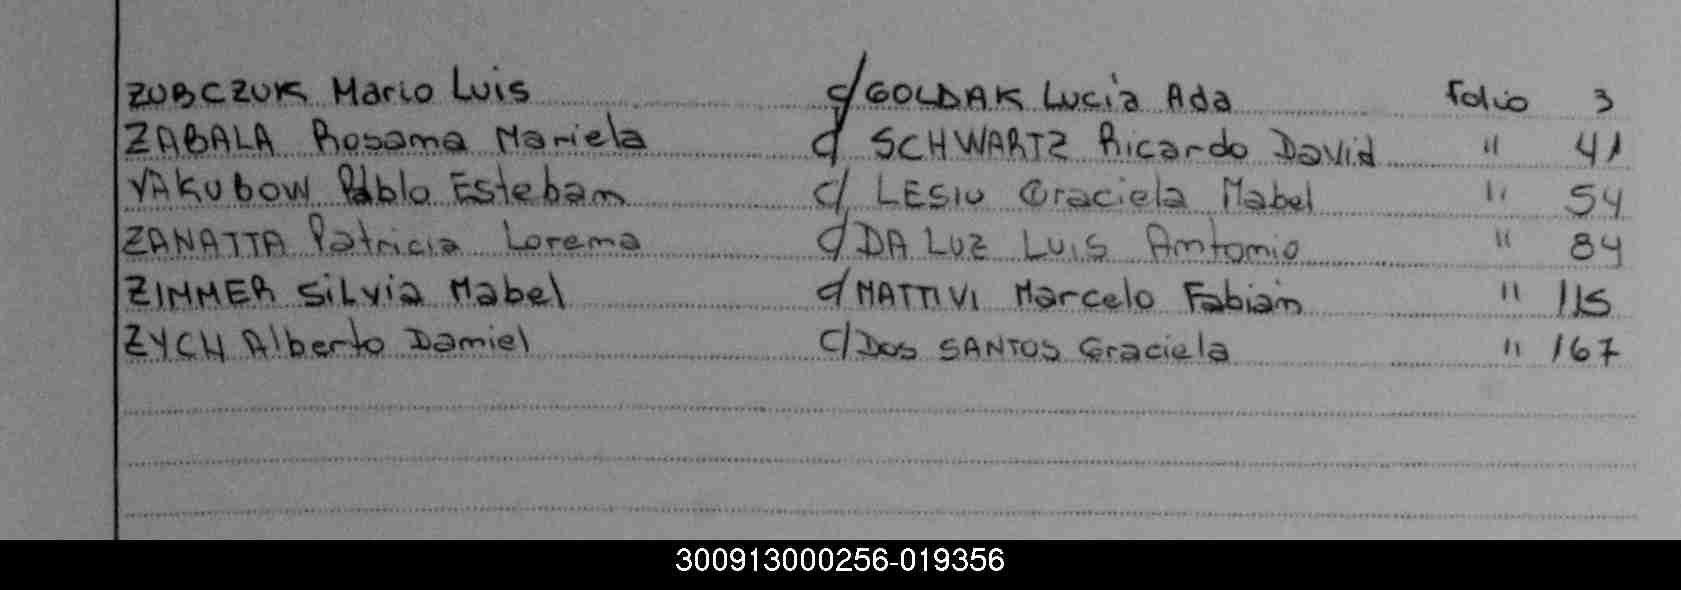 ZUBCZUK Mario Luis c/ GOLDAK Lucia Ada folio 3
ZABALA Rosana Mariela c/ SCHWARTZ Ricardo David " 41
YAKUBOW Pablo Esteban c/ LESIU Graciela Mabel " 54
ZANATTA Patricia Lorena c/ DA LUZ LUIS Antonio " 84
ZIMMER Silvia Mabel c/ MATTIVI Marcelo Fabián " 115
ZYCH Alberto Daniel c/ Dos SANTOS Graciela " 167
300913000256-019356